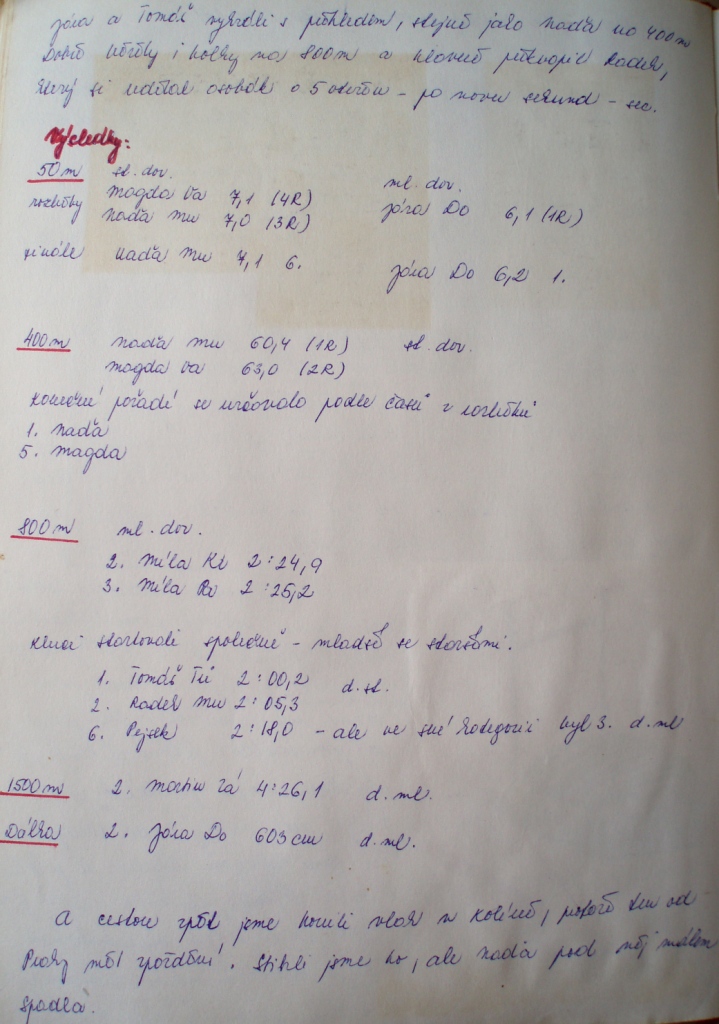 Jára a Tomáš vyhráli s přehledem, stejně jako Naďa na 400m
Dobře běžely i holky na 800m a hlavně překvapil Radek,
který si udělal osobák o 5 vteřin - po novu sekund - sec.
Výsledky:
50m st. dov. ml. dov.
rozběhy Magda Va 7,1 (4R) Jára Do 6,1 (1R)
Naďa Mu 7,0 (3R)
finále Naďa Mu 7,1 6. Jára Do 6,2 1.
400m Naďa Mu 60,4 (1R) st. dov.
Magda Va 63,0 (2R)
Konečné pořadí se určovalo podle časů v rozběhů
1. Naďa
5. Magda
800m ml. dov.
2. Míla Kr 2:24,9
3. Míla 2:25,2
Kluci startovali společně - mladší se staršími.
1. Tomáš 2:00,2 d.st.
2. Radek Mu 2:05,3
6. Pejsek 2:18,0 - ale ve své kategorii byl 3. d.ml
1500m 2. Martin Zá 4:26,1 d.ml.
Dálka 2. Jára Do 603cm d.ml.
A cestou zpět jsme honili vlak v Kolíně, protože ten od
Prahy měl zpoždění. Stihli jsme ho, ale Naďa pod něj málem
spadla.